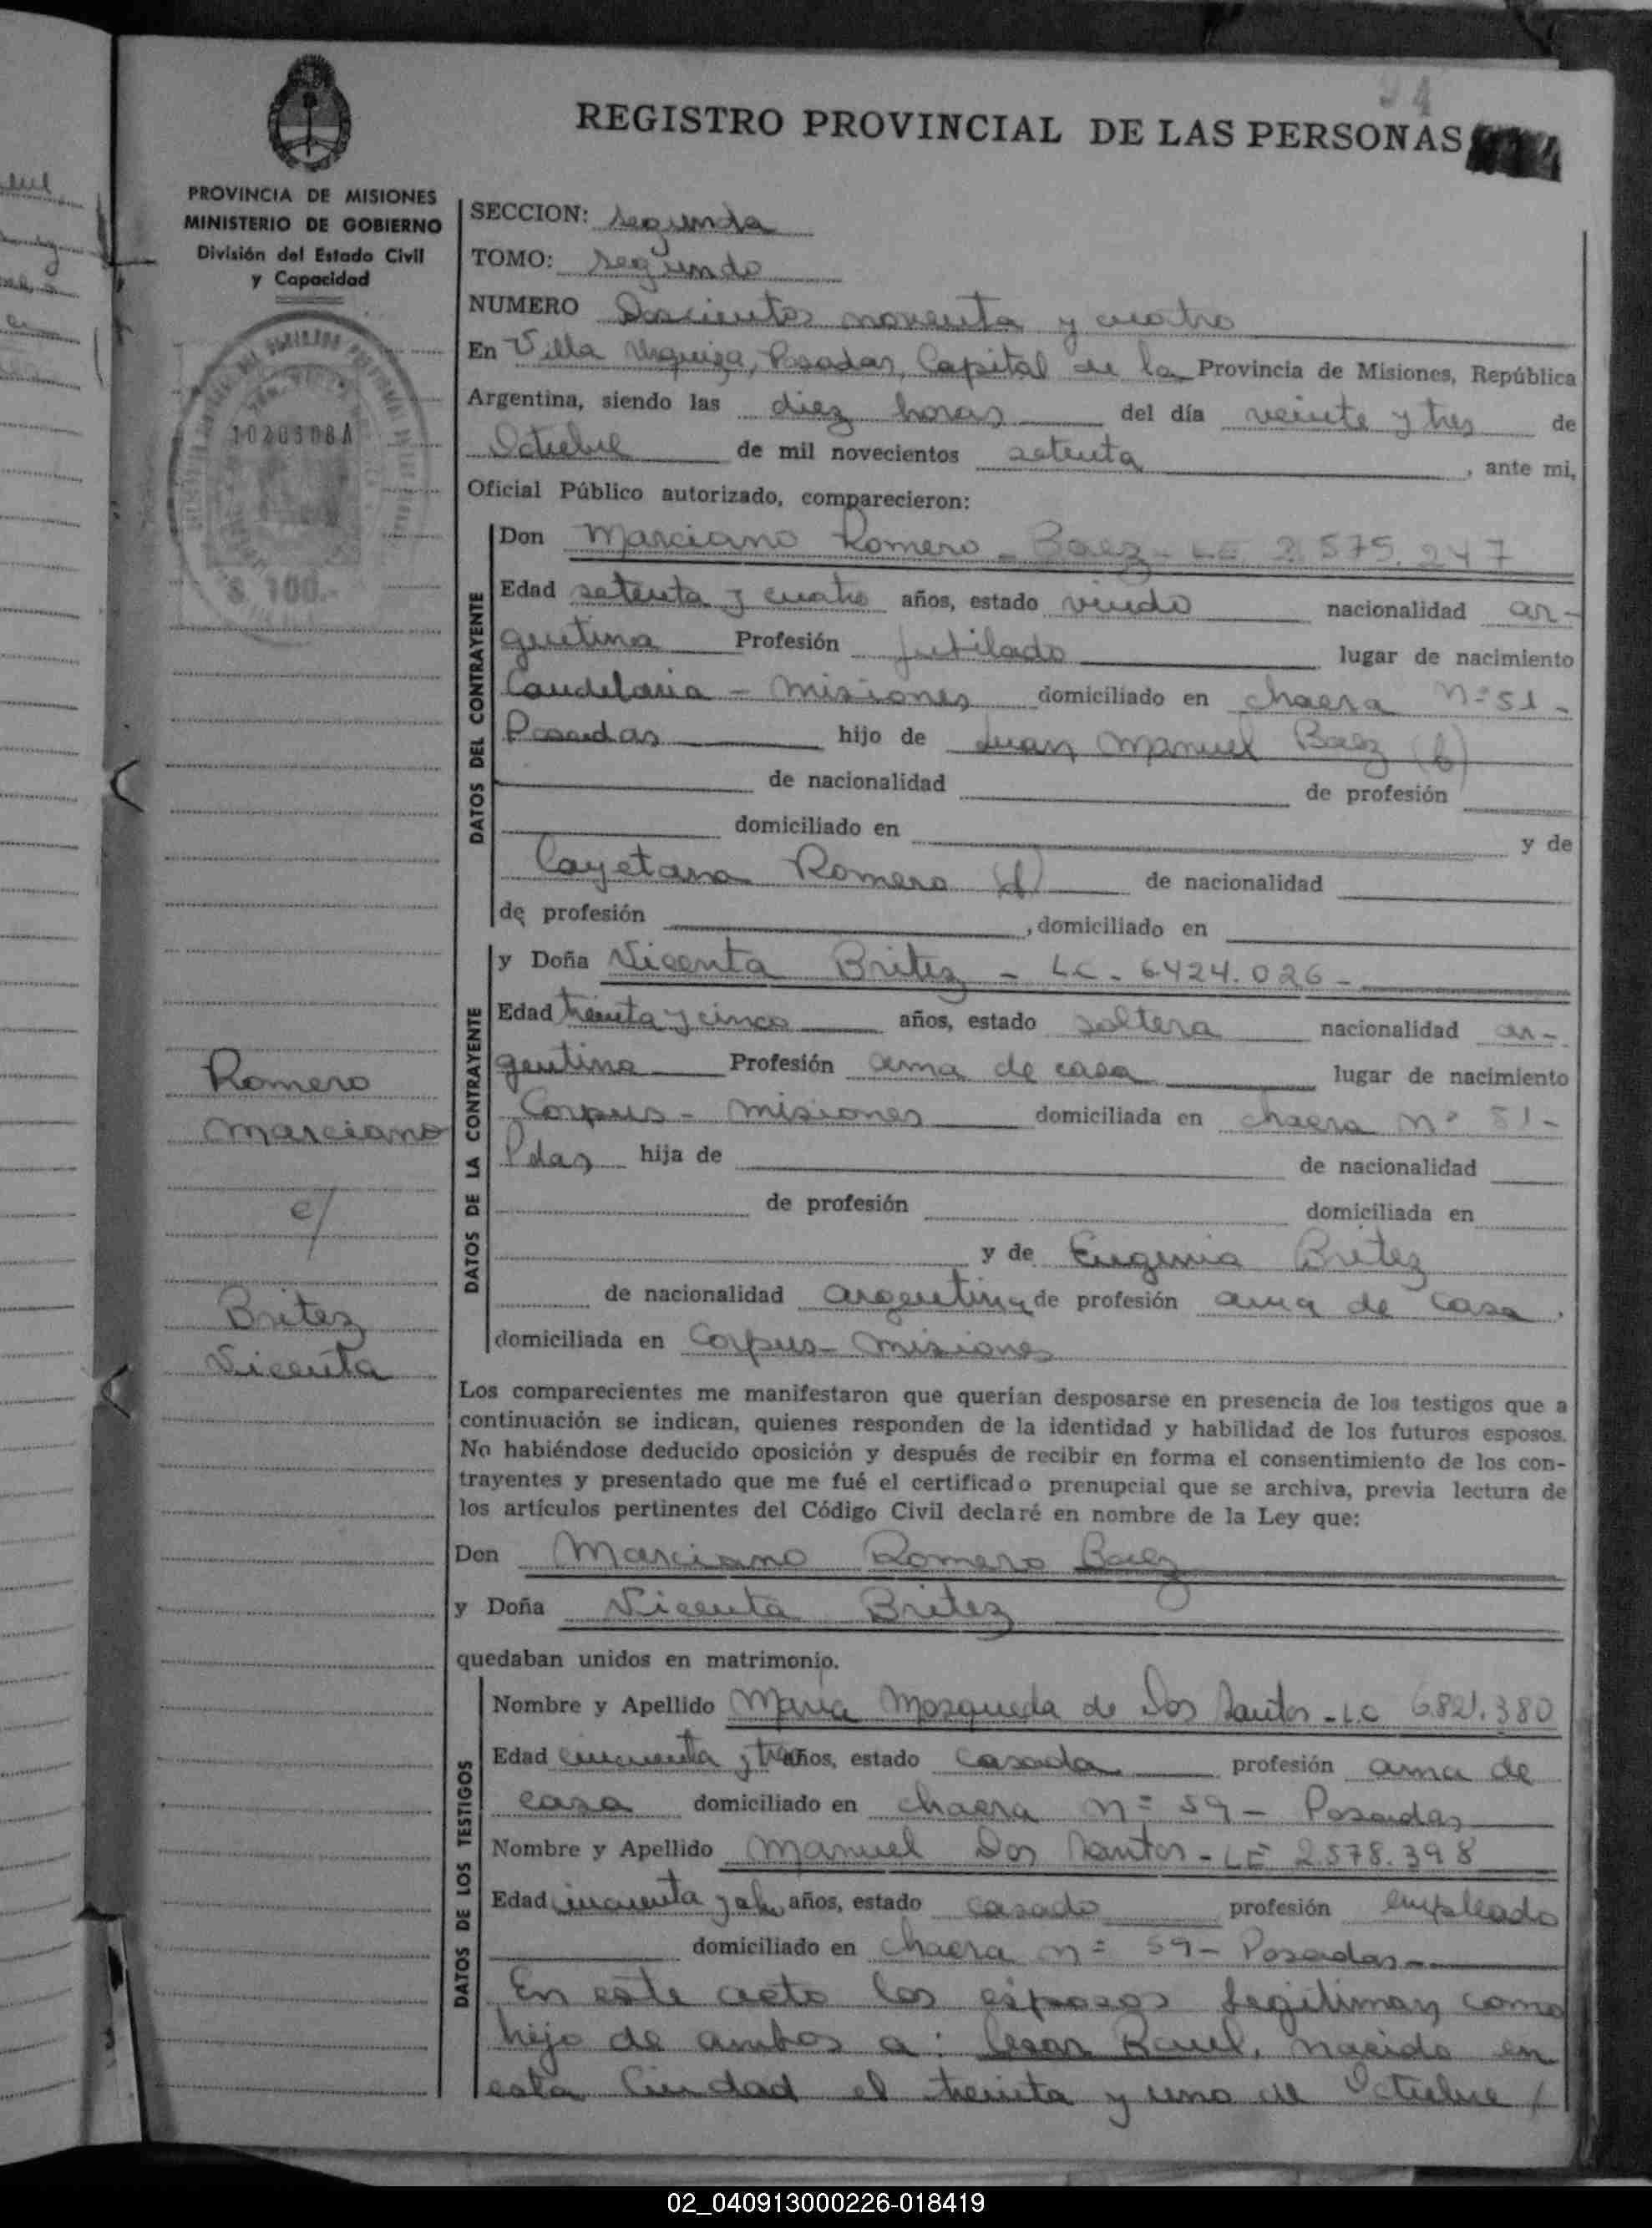 REGISTRO PROVINCIAL DE LAS PERSONAS
PROVINCIA DE MISIONES
MINISTERIO DE GOBIERNO
División del Estado Civil
y Capacidad
1020508A
$ 100.-
SECCION: segunda
TOMO: segundo
NUMERO Doscientos noventa y cuatro
En Villa Urquiza, Posadas, Capital de la Provincia de Misiones, República
Argentina, siendo las diez horas del día veinte y tres de
Octubre de mil novecientos setenta, ante mi,
Oficial Público autorizado, comparecieron:
DATOS DEL CONTRAYENTE
Don Marciano Romero - Baez - LE 2.575.247
Edad setenta y cuatro años, estado viudo nacionalidad ar-
gentina Profesión Jubilado lugar de nacimiento
Candelaria - Misiones domiciliado en chacra Nº 51 -
Posadas hijo de Juan Manuel Baez (f)
de nacionalidad de profesión
domiciliado en y de
Cayetana Romero (f) de nacionalidad
de profesión , domiciliado en
DATOS DE LA CONTRAYENTE
y Doña Vicenta Britez - LC - 6424.026 -
Edad treinta y cinco años, estado soltera nacionalidad ar-
gentina Profesión ama de casa lugar de nacimiento
Corpus - Misiones domiciliada en chacra Nº 51 -
Pdas hija de de nacionalidad
de profesión domiciliada en
y de Eugenia Britez
de nacionalidad argentina de profesión ama de casa .
domiciliada en Corpus - Misiones
Romero
Marciano
c/
Britez
Vicenta
Los comparecientes me manifestaron que querían desposarse en presencia de los testigos que a
continuación se indican, quienes responden de la identidad y habilidad de los futuros esposos.
No habiéndose deducido oposición y después de recibir en forma el consentimiento de los con-
trayentes y presentado que me fué el certificado prenupcial que se archiva, previa lectura de
los artículos pertinentes del Código Civil declaré en nombre de la Ley que:
Don Marciano Romero Baez
y Doña Vicenta Britez
quedaban unidos en matrimonio.
DATOS DE LOS TESTIGOS
Nombre y Apellido María Mosqueda de Dos Santos - LC 6.821.380
Edad cincuenta y tres años, estado casada profesión ama de
casa domiciliado en chacra Nº 59 - Posadas
Nombre y Apellido Manuel Dos Santos - LE 2.578.398
Edad cincuenta y años, estado casado profesión empleado
domiciliado en chacra nº 59 - Posadas -
En este acto los esposos legitiman como
hijo de ambos a: Cesar Raul, nacido en
esta Ciudad el treinta y uno de Octubre /
02_040913000226-018419